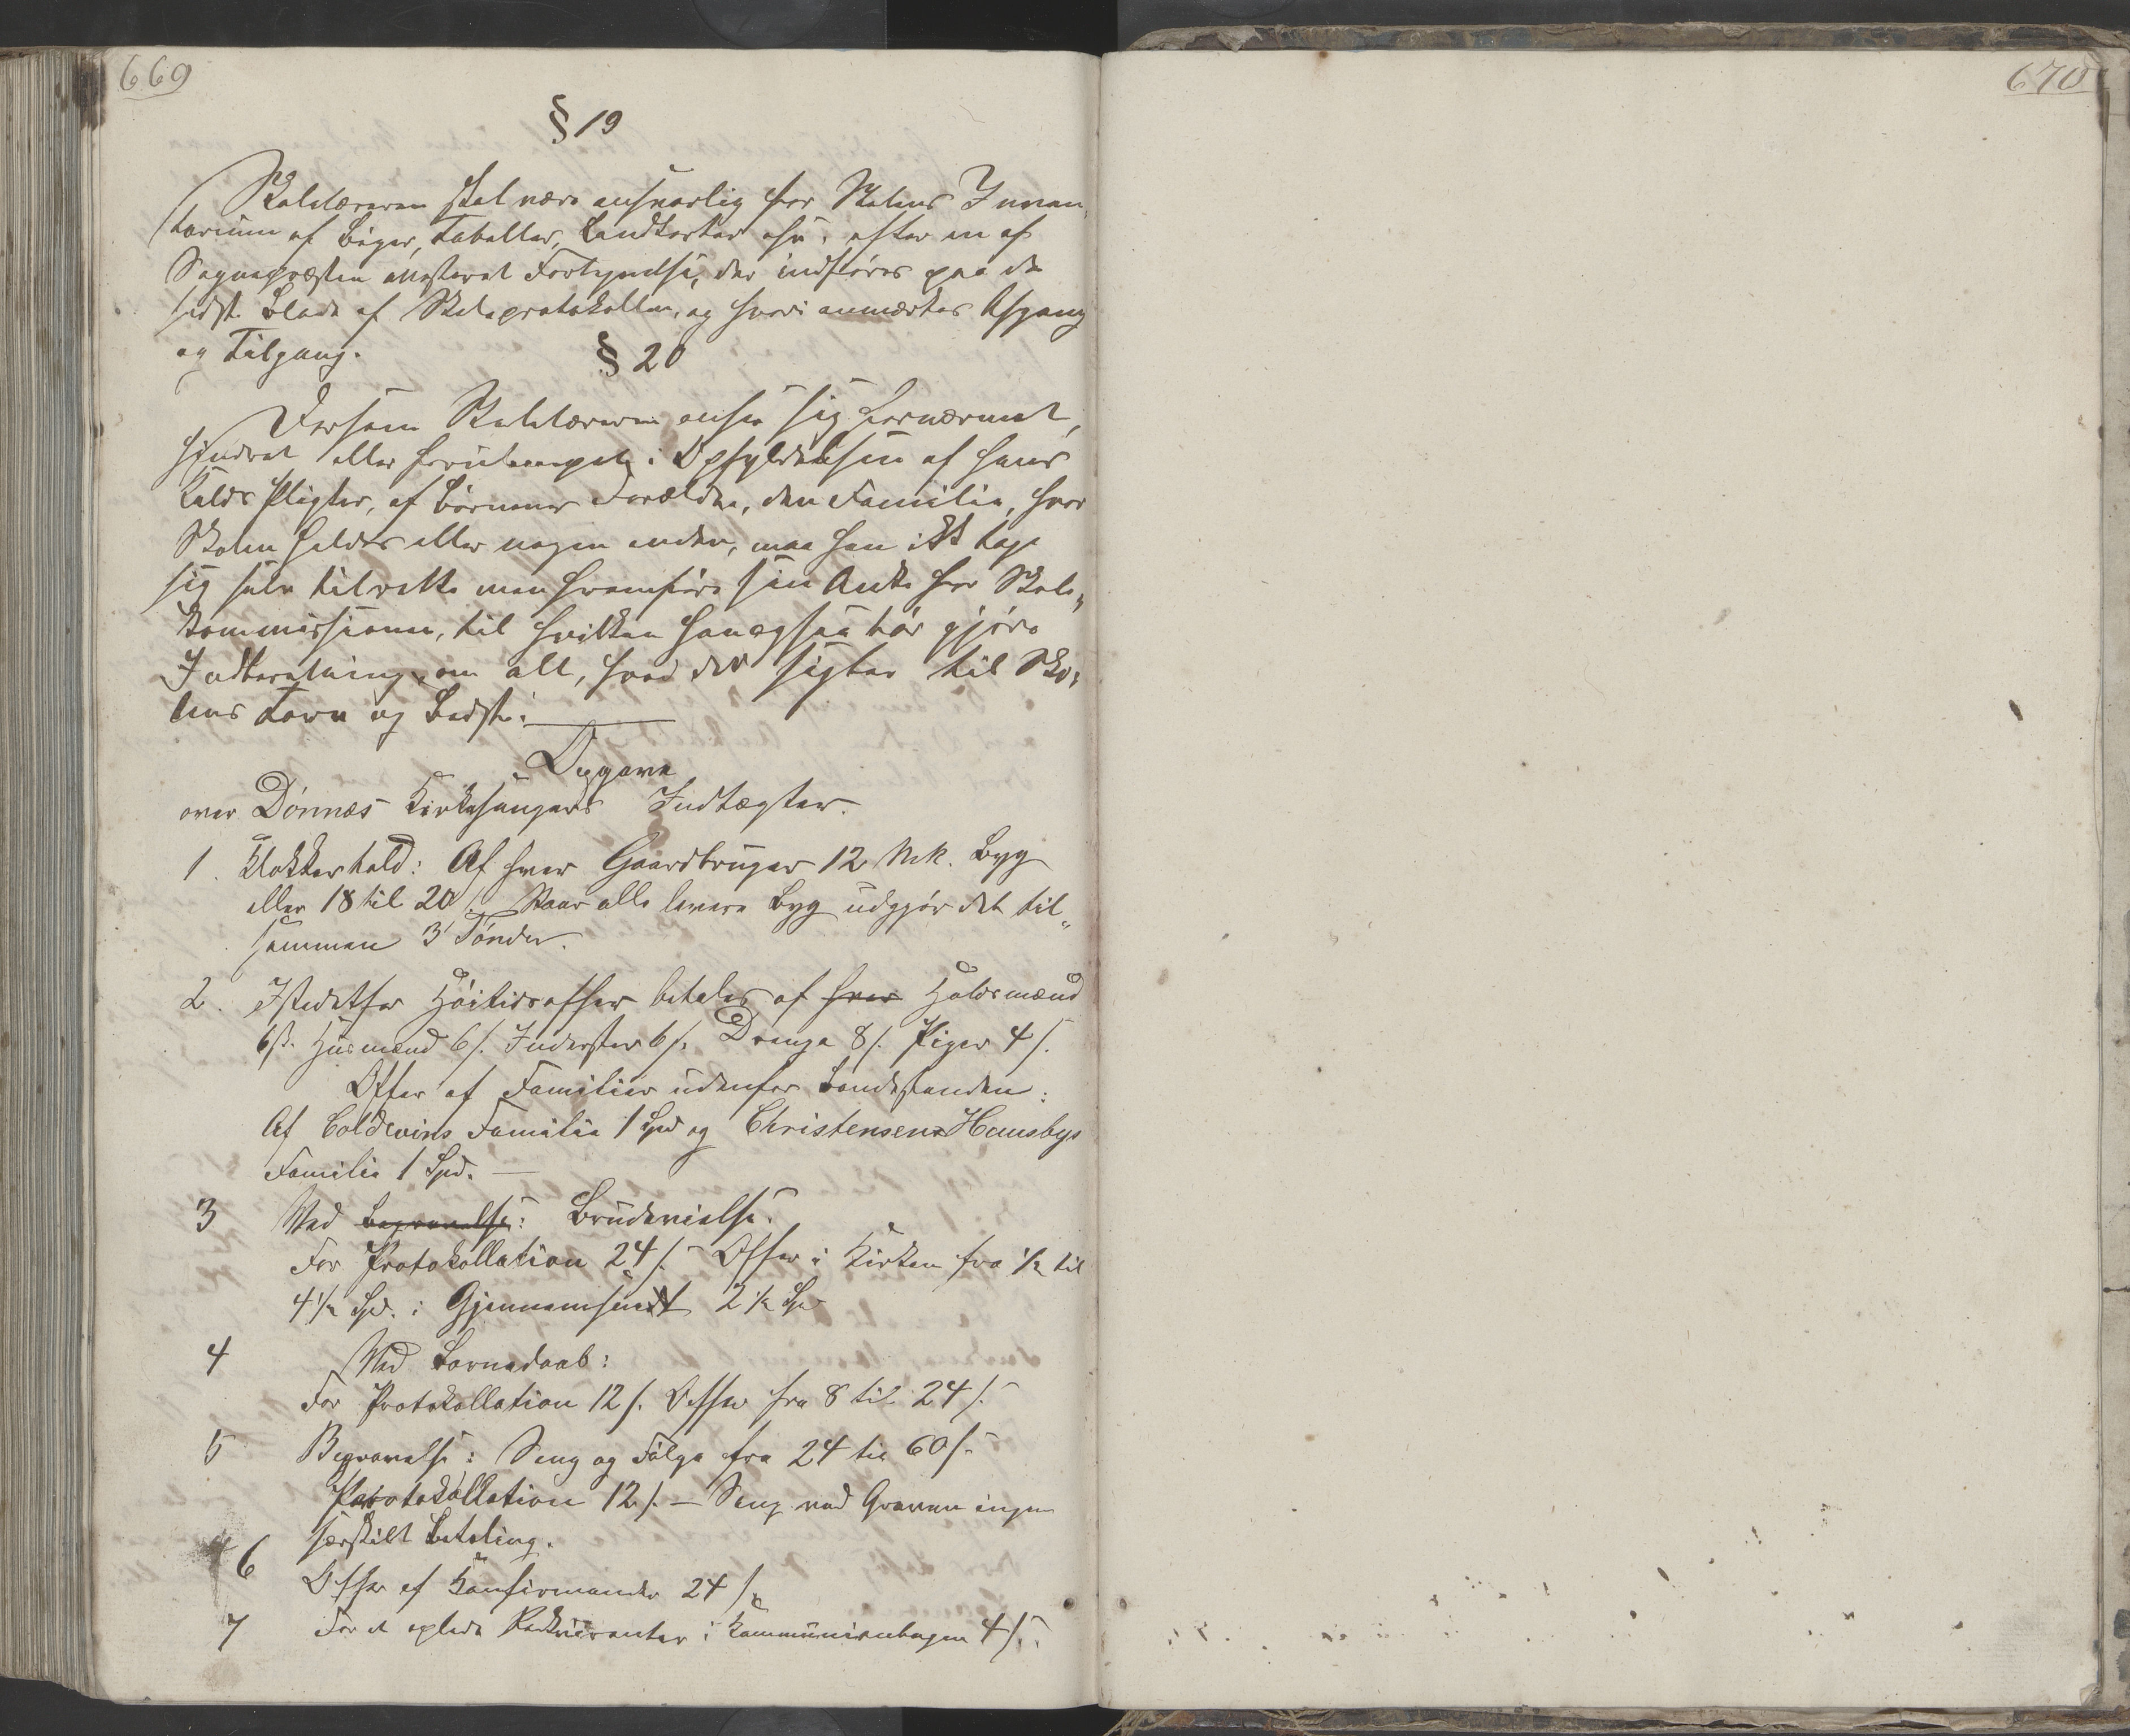 669
§ 19
Skolelæreren skal være ansvarlig for Skolens Inven-
tarium af Bøger, Tabeller, Landkarter osv. efter en af
Sognepræsten attesteret Fortegnelse, der indføres paa de
sidste Blade af Skoleprotokollen, og hvori anmærkes Afgang
og Tilgang.
§ 20
Dersom Skolelæreren anseer sig fornærmet,
hindret eller i Opfyldelsen af hans
Kalds Pligter, af Børnenes Forældre, den Familie, hvor
Skolen holdes eller nogen anden, maa han ikke tage
sig selv tilrette men fremføre sin Anke for Skole„
kommissionen, til hvilken han ogsaa bør gjøre
Indberetning om alt, hvad der sigter til Sko„
lens Tarv og Bedste.
Opgave
over Dønnæs Kirkesangers Indtægter.
1. Klokkerhold: Af hver Gaardbruger 12 Mk. Byg
eller 18 til 20 /. Naar alle levere Byg udgjør det til„
sammen 3 Tønder.
2. Istedetfor Høitidsoffer betales af hver Holdsmænd
6 /. Husmænd 6 /. Inderster 6 /. Drenge 8 /. Piger 4 /.
Offer af Familier udenfor Bondestanden:
Af Coldevins Familie 1 Spd og Christensens Hamsbys
Familie 1 Spd. —
3 Ved Begravelse: Brudevielse.
For Protokollation 24 /. Offer i Kirken fra ½ til
4½ Spd. i Gjennemsnidt 2½ Spd
4 Ved Barnedaab:
For Protokollation 12 /. Offer fra 8 til 24 /.
5 Begravelse: Sang og Følge fra 24 til 60 /.
Protokollation 12 /. — Sang ved Graven ingen
særskilt Betaling.
6 Offer af Konfirmander 24 /.
7 For at oplede i Kommunionbogen 4 /.
670